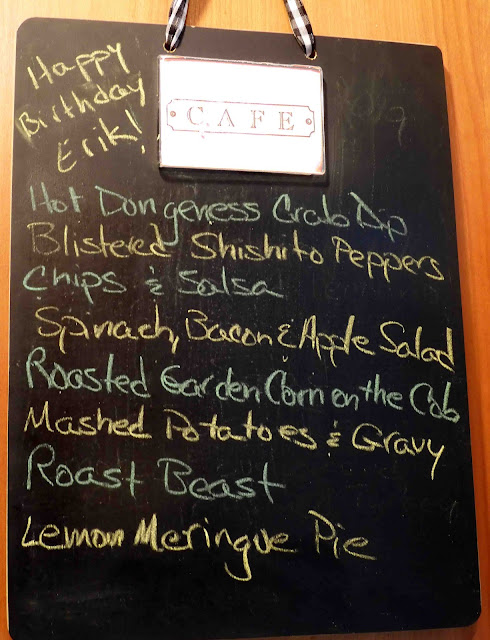 Happy
Birthday
Erik!
CAFE
Hot Dongeness Crab Dip
Blistered Shishito Peppers
Chips & Salsa
Spinach, Bacon & Apple Salad
Roasted Garden Corn on the Cob
Mashed Potatoes & Gravy
Roast Beast
Lemon Meringue Pie